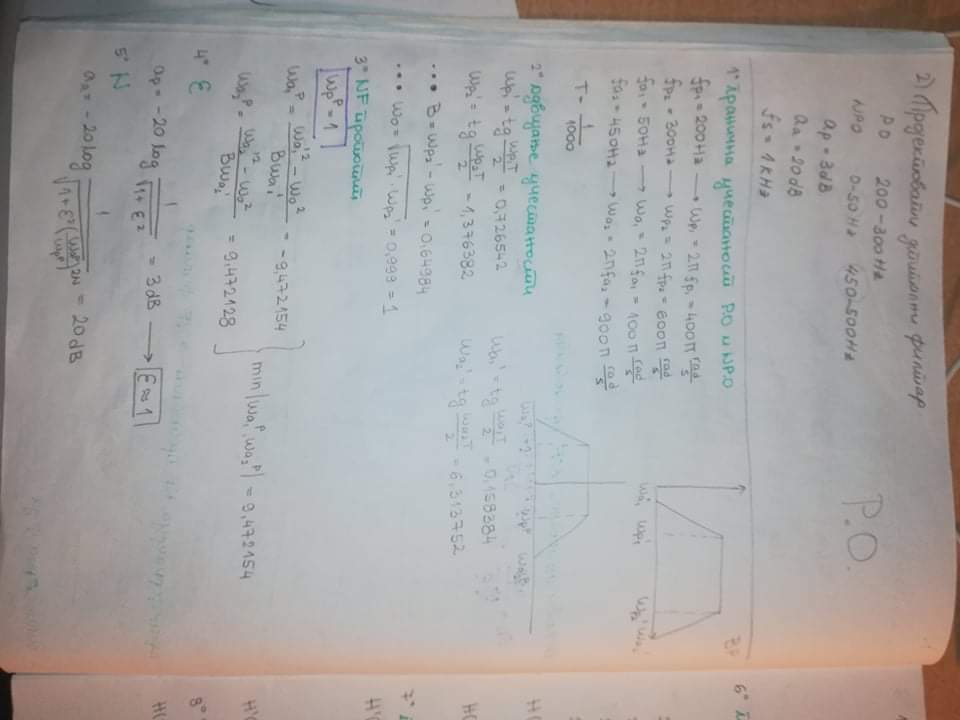 2) Пројектовати дигитални филтар
PO 200-300Hz
NPO 0-50Hz 450-500Hz
ap = 3dB
aa = 20dB
fs = 1KHz
P.O.
1° Гранична учестаност P.O и N.P.O
fp1 = 200Hz → ωp1 = 2πfp1 = 400π rad/s
fp2 = 300Hz → ωp2 = 2πfp2 = 600π rad/s
fa1 = 50Hz → ωa1 = 2πfa1 = 100π rad/s
fa2 = 450Hz → ωa2 = 2πfa2 = 900π rad/s
T = 1/1000
ωa1' ωp1' ωp2' ωa2'
2° учестаности
ωp1' = tg ωp1T/2 = 0,726542
ωp2' = tg ωp2T/2 = 1,376382
ωa1' = tg ωa1T/2 = 0,158384
ωa2' = tg ωa2T/2 = 6,313752
••• B = ωp2' - ωp1' = 0,64984
••• ω0 = √ωp1' · ωp2' = 0,999 = 1
3° NF прототип
ωpᵖ = 1
ωa1ᵖ = ωa1'² - ω0² / Bωa1' = -9,472154
ωa2ᵖ = ωa2'² - ω0² / Bωa2' = 9,472128
min|ωa1ᵖ, ωa2ᵖ| = 9,472154
4° ε
ap = -20log 1/√1+ε² = 3dB → ε ≈ 1
5° N
aa = -20log 1/√1+ε²(ωaᵖ/ωpᵖ)2N = 20dB
6°
H(
7°
H'(
8°
H(